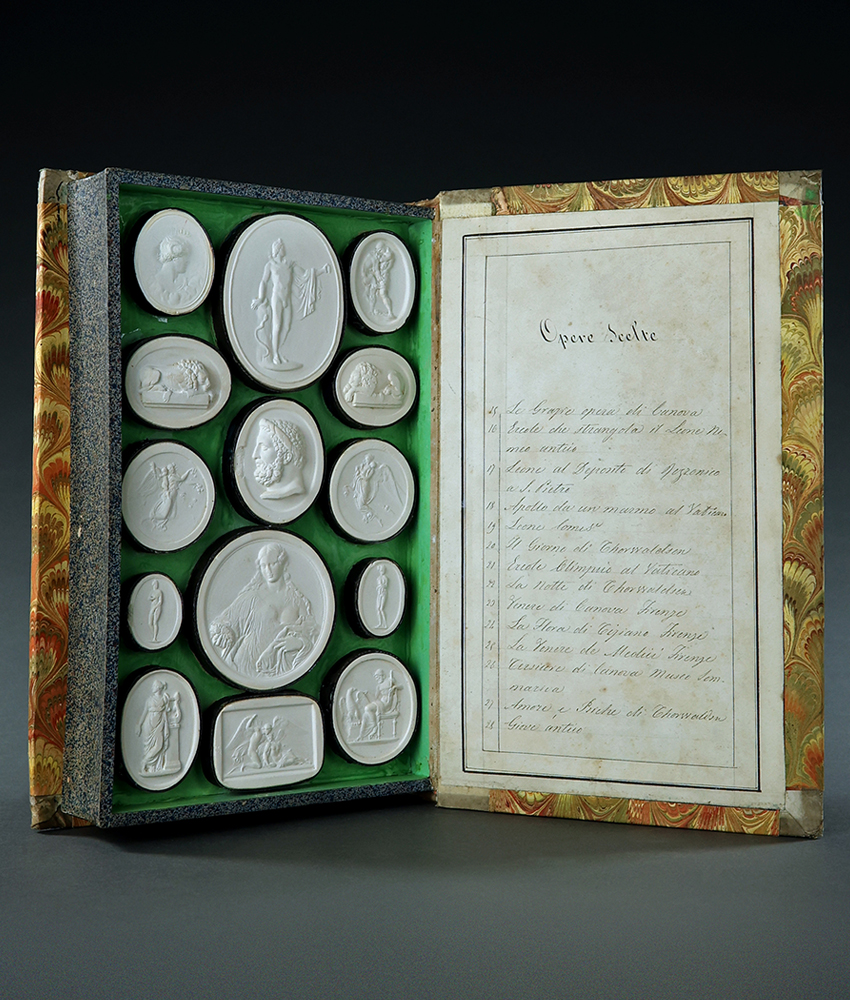 Opere Scelte
15 Le Grazie opera di Canova
16 Ercole che strangola il Leone Ne-
meo antico
17 Leone al Deposito di Rezzonico
a S. Pietro
18 Apollo da un marmo al Vatican
19 Leone
20 Il Giorno di Thorwaldsen
21 Ercole Olimpico al Vaticano
22 La Notte di Thorwaldsen
23 Venere di Canova Firenze
24 La Flora di Tiziano Firenze
25 La Venere de Medici Firenze
26 di Canova Museo Som-
mariva
27 Amore e Psiche di Thorvaldsen
28 Giove antico